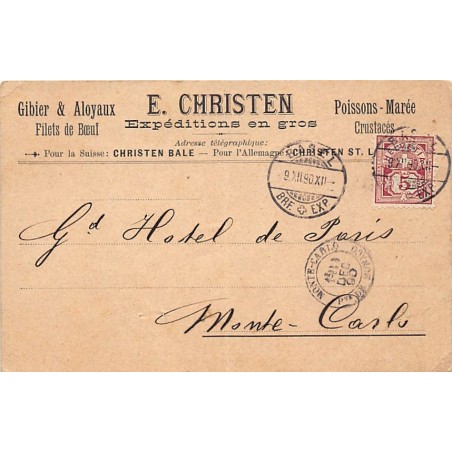 Gibier & Aloyaux
Filets de Bœuf
E. CHRISTEN
Expéditions en gros
Poissons-Marée
Crustacés
Adresse télégraphique:
Pour la Suisse: CHRISTEN BALE — Pour l'Allemagne: CHRISTEN ST. L
9.XII.90.XII
BRF. EXP.
5
Gd Hotel de Paris
Monte-Carlo
MONTE-CARLO
DEC